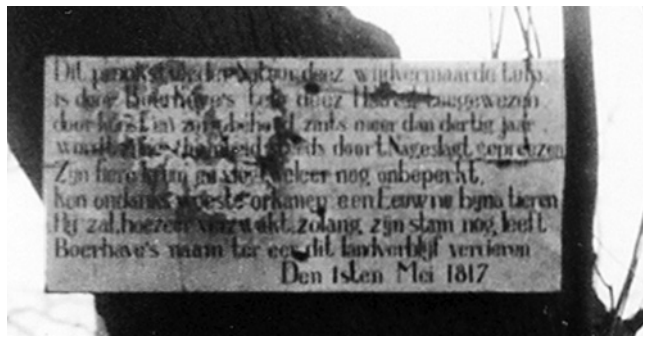 Dit pronkstuk der natuur, deez' wijdvermaarde tulp,
is door Boerhave's teelt deez Hoeve toegewezen
door kunst en zorg behoud, zints meer dan dertig jaar
wordt steeds door t Nageslagt geprezen
Zijn fiere kruin weleer nog onbeperkt,
Kon ondanks woeste orkanen een Eeuw na bijna tieren
Hij zal, hoezeer verzwakt, zolang zijn stam nog leeft
Boerhave's naam ter eer dit landverblijf vercieren
Den 1sten Mei 1817